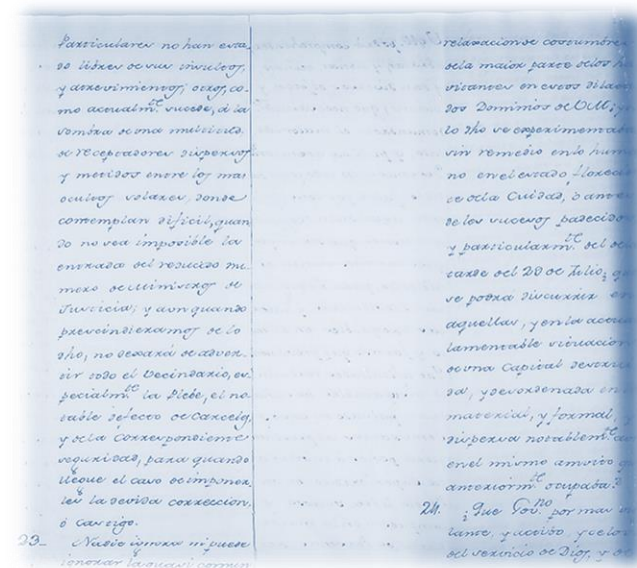 Particulares no han esta-
do libres de sus insultos,
y atrevimientos, otros, co-
mo actualm.te sucede, á la
sombra de una multitud
de receptadores dispersos
y metidos entre los mas
ocultos solares, donde
contemplan dificil, quan-
do no sea imposible la
entrada del reducido nu-
mero de Ministros de
Justicia; y aun quando
prescindieramos de lo
dho, no dexará de adver-
tir todo el Vecindario, es-
pecialm.te la Plebe, el no-
table defecto de Carceles,
y de la correspondiente
seguridad, para quando
llegue el caso de imponer-
les la devida correccion,
ó castigo.
23_ Nadie ignora ni puede
ignorar la quasi comun
relaxacion de costumbre
de la maior parte de los ha
vitantes en estos dilata
dos Dominios de V.M; y
lo dho se experimentaba
sin remedio en lo huma
no en el estado florecie
te de la Ciudad, ó antes
de los sucesos padecidos
y particularm.te del de
tarde del 29 de Julio, q
se podrá discurrir en
aquellas, y en la actual
lamentable situacion
de una Capital destrui
da, y desordenada en
material, y formal,
dispersa notablem.te
en el mismo amvito q
anteriorm.te ocupaba?
24. ¿Que Gov.no por mas
lante, y activo, y celos
del servicio de Dios, y de